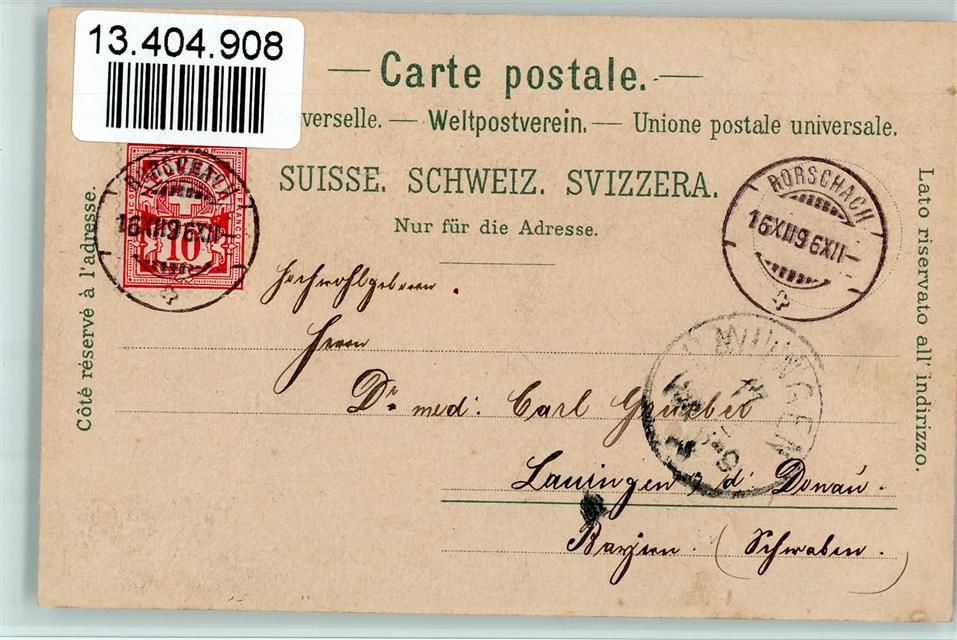 13.404.908
— Carte postale. —
verselle. — Weltpostverein. — Unione postale universale.
SUISSE. SCHWEIZ. SVIZZERA.
Nur für die Adresse.
Côté réservé à l'adresse.
Lato riservato all' indirizzo.
FRANCO
10
16 XII 96 XII
RORSCHACH
16 XII 96 XII
Hochwohlgeboren.
Herrn
Dr med: Carl Grueber
Lauingen a. d. Donau.
Bayern. (Schwaben.)